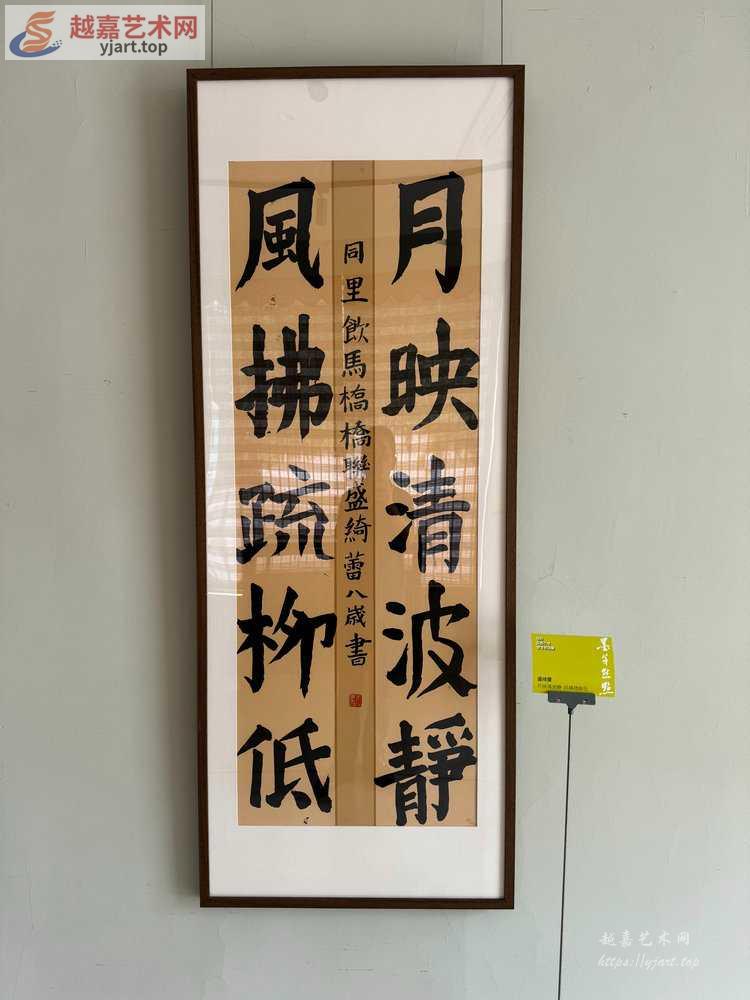 越嘉艺术网
yjart.top
月映清波靜
風拂疏柳低
同里飲馬橋橋聯盛綺蕾八歲書
盛绮蕾
越嘉艺术网
https://yjart.top